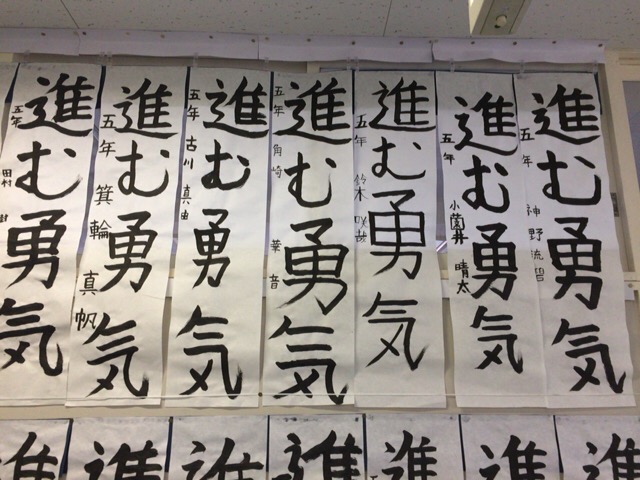 進む勇気
五年 神野流碧
進む勇気
五年 小薗井 晴太
進む勇気
五年 鈴木
進む勇気
五年 角崎 華音
進む勇気
五年 古川 真由
進む勇気
五年 箕輪 真帆
進む勇気
五年 田村
進
進
進
進
進
進
進